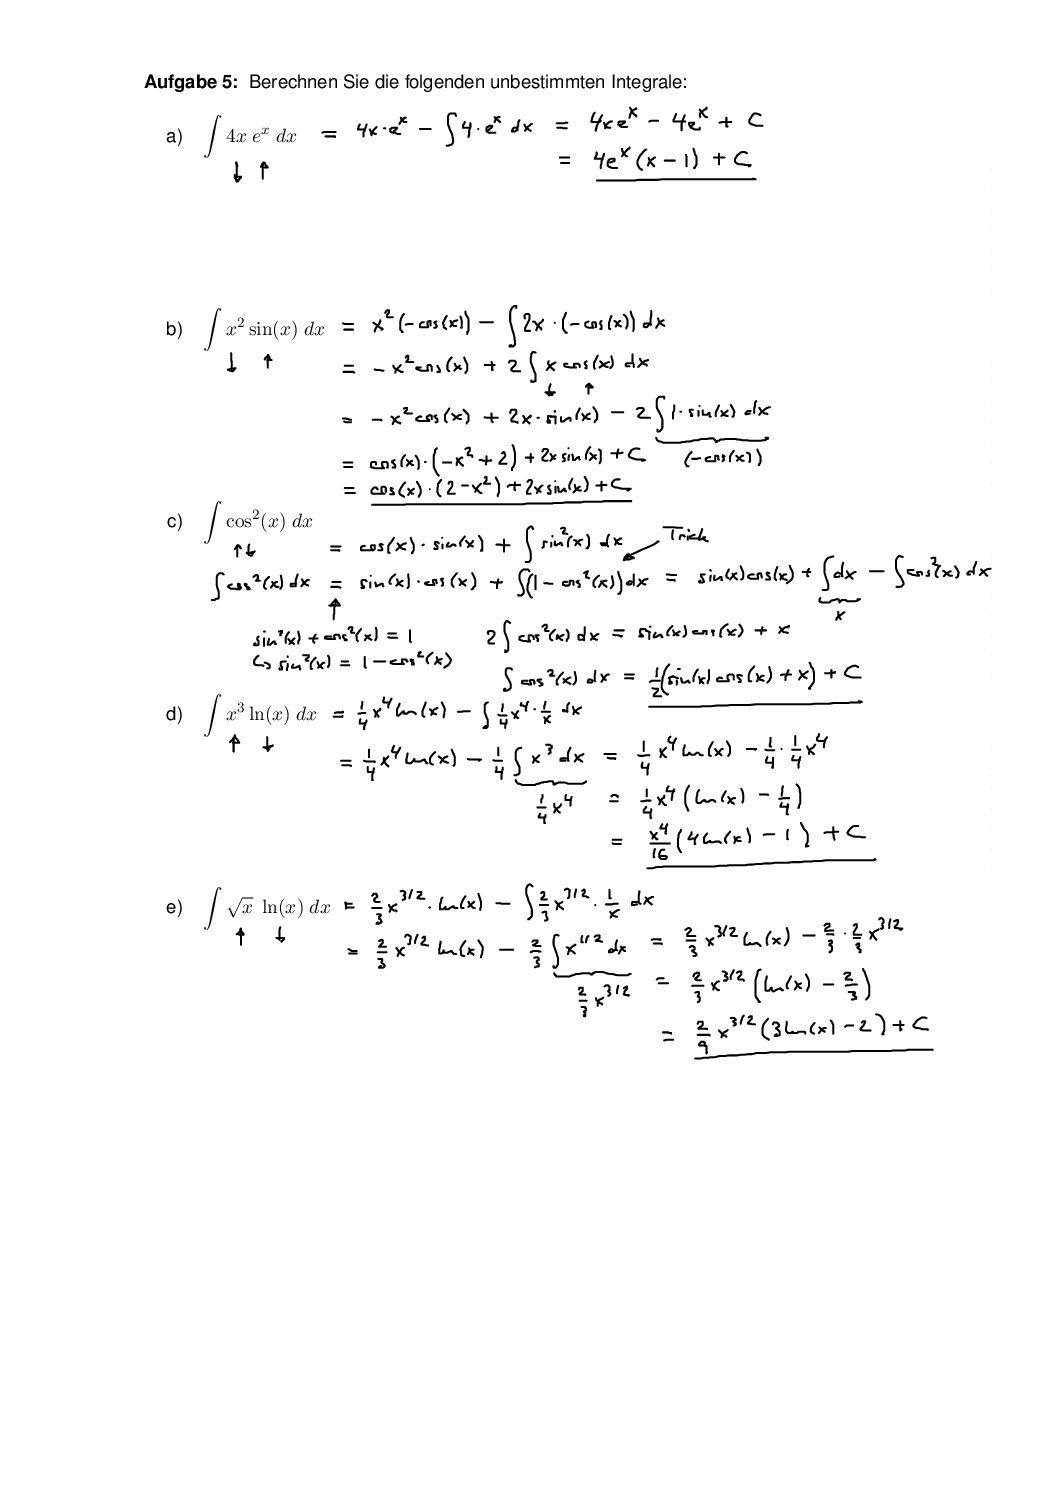 Aufgabe 5: Berechnen Sie die folgenden unbestimmten Integrale:
a) ∫ 4x eˣ dx = 4x·eˣ − ∫4·eˣ dx = 4xeˣ − 4eˣ + C
↓ ↑ = 4eˣ(x−1) + C
b) ∫ x² sin(x) dx = x²(−cos(x)) − ∫2x·(−cos(x)) dx
↓ ↑ = −x²cos(x) + 2∫ x cos(x) dx
↓ ↑
= −x²cos(x) + 2x·sin(x) − 2∫1·sin(x) dx
= cos(x)·(−x²+2) + 2x sin(x) + C (−cos(x))
= cos(x)·(2−x²) + 2x sin(x) + C
c) ∫ cos²(x) dx
↑↓ = cos(x)·sin(x) + ∫ sin²(x) dx Trick
∫cos²(x) dx = sin(x)·cos(x) + ∫(1−cos²(x))dx = sin(x)cos(x) + ∫dx − ∫cos²(x) dx
↑ x
sin²(x) + cos²(x) = 1 2∫cos²(x) dx = sin(x)cos(x) + x
↪ sin²(x) = 1−cos²(x) ∫cos²(x) dx = 1/2(sin(x)cos(x) + x) + C
d) ∫ x³ ln(x) dx = 1/4 x⁴ ln(x) − ∫ 1/4 x⁴ · 1/x dx
↑ ↓ = 1/4 x⁴ ln(x) − 1/4 ∫ x³ dx = 1/4 x⁴ ln(x) − 1/4 · 1/4 x⁴
1/4 x⁴ = 1/4 x⁴ (ln(x) − 1/4)
= x⁴/16 (4ln(x) − 1) + C
e) ∫ √x ln(x) dx = 2/3 x^3/2 · ln(x) − ∫ 2/3 x^3/2 · 1/x dx
↑ ↓ = 2/3 x^3/2 ln(x) − 2/3 ∫ x^1/2 dx = 2/3 x^3/2 ln(x) − 2/3 · 2/3 x^3/2
2/3 x^3/2 = 2/3 x^3/2 (ln(x) − 2/3)
= 2/9 x^3/2 (3ln(x) − 2) + C